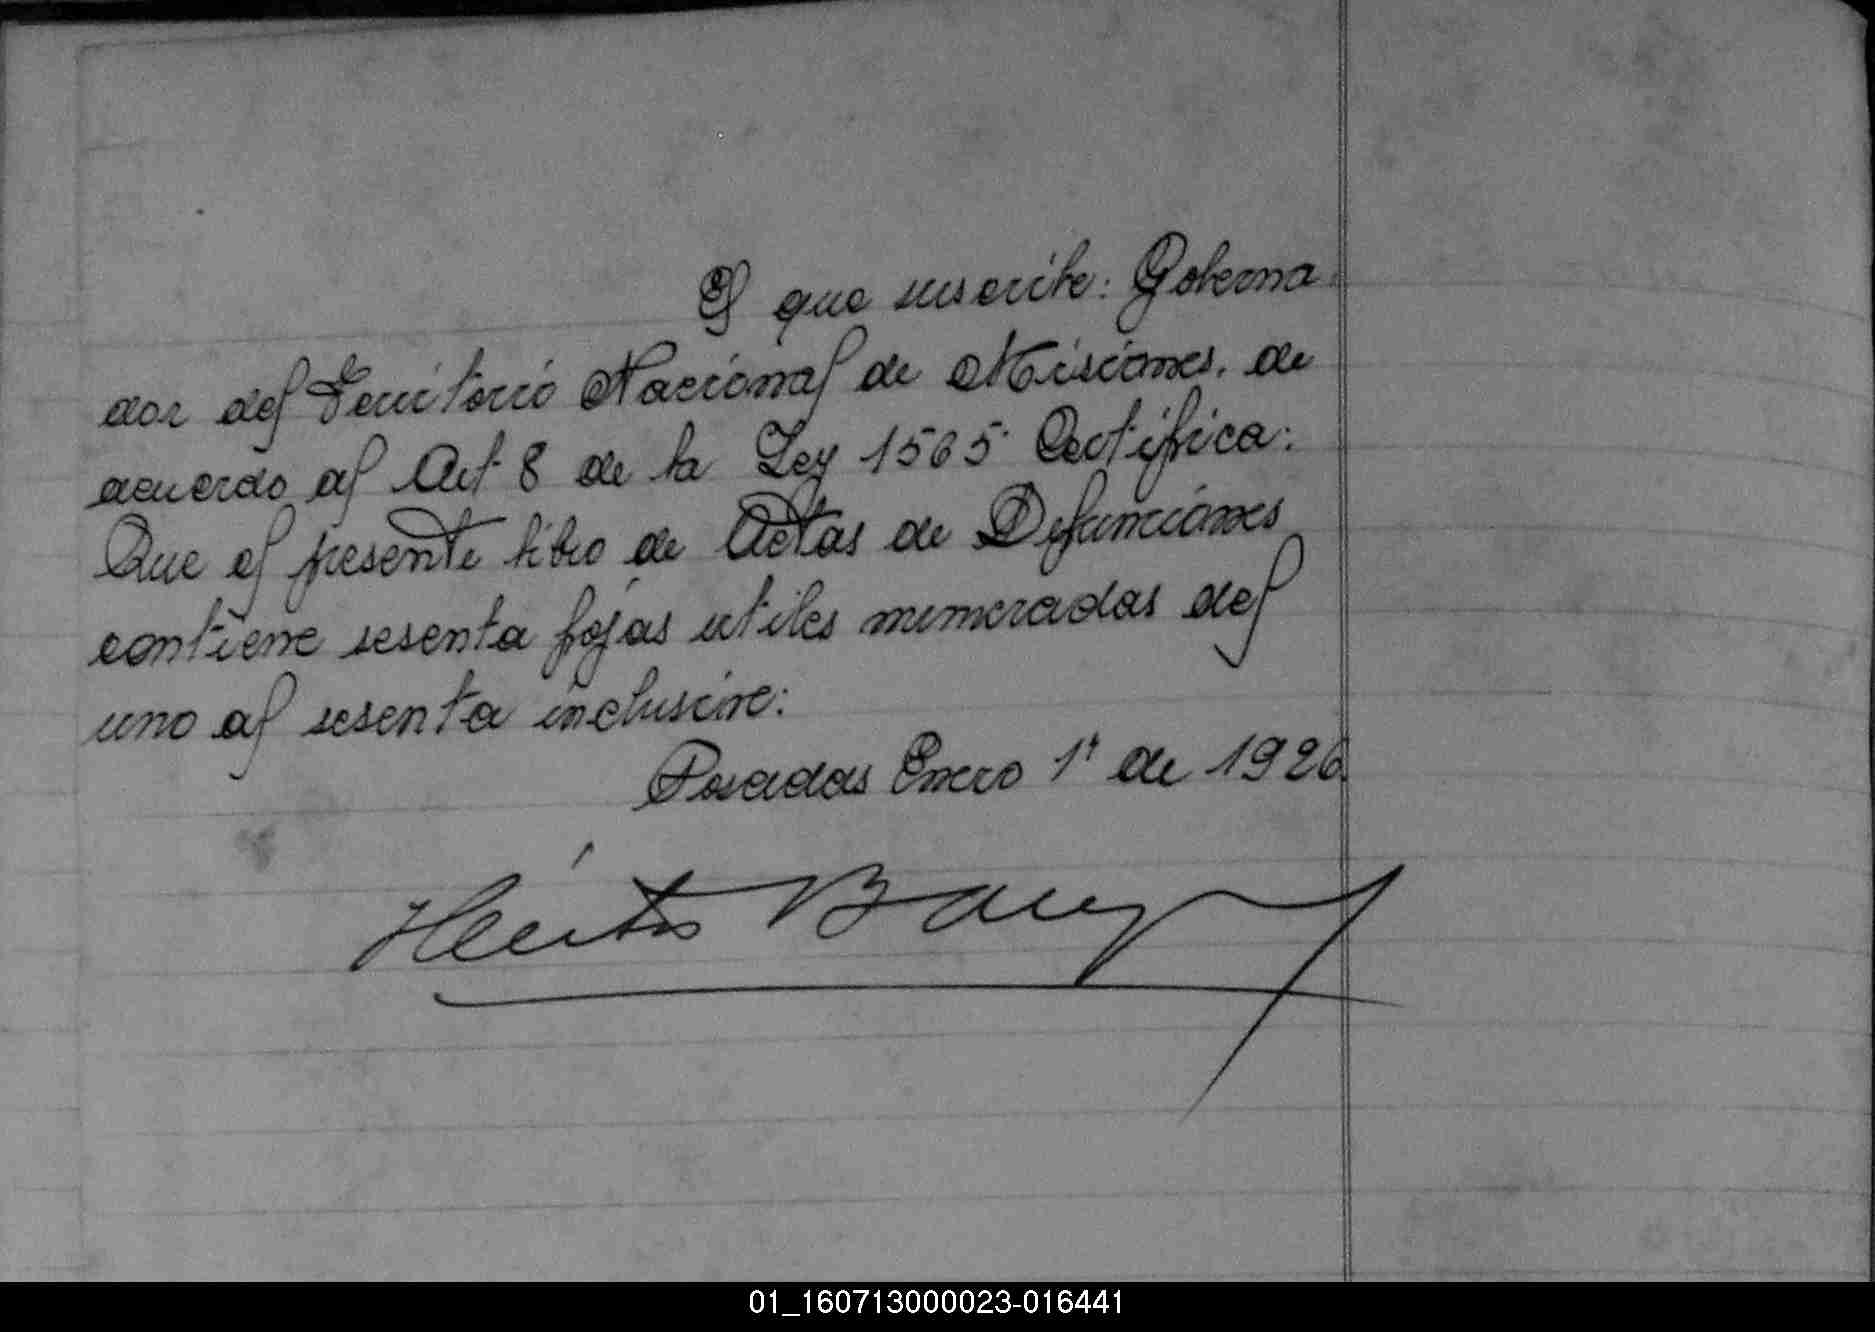 El que suscribe: Goberna
dor del Territorio Nacional de Misiones, de
acuerdo al Art 8 de la Ley 1565 Certifica:
Que el presente libro de Actas de Defunciones
contiene sesenta fojas utiles numeradas del
uno al sesenta inclusive:
Posadas Enero 1º de 1926
Héctor
01_160713000023-016441